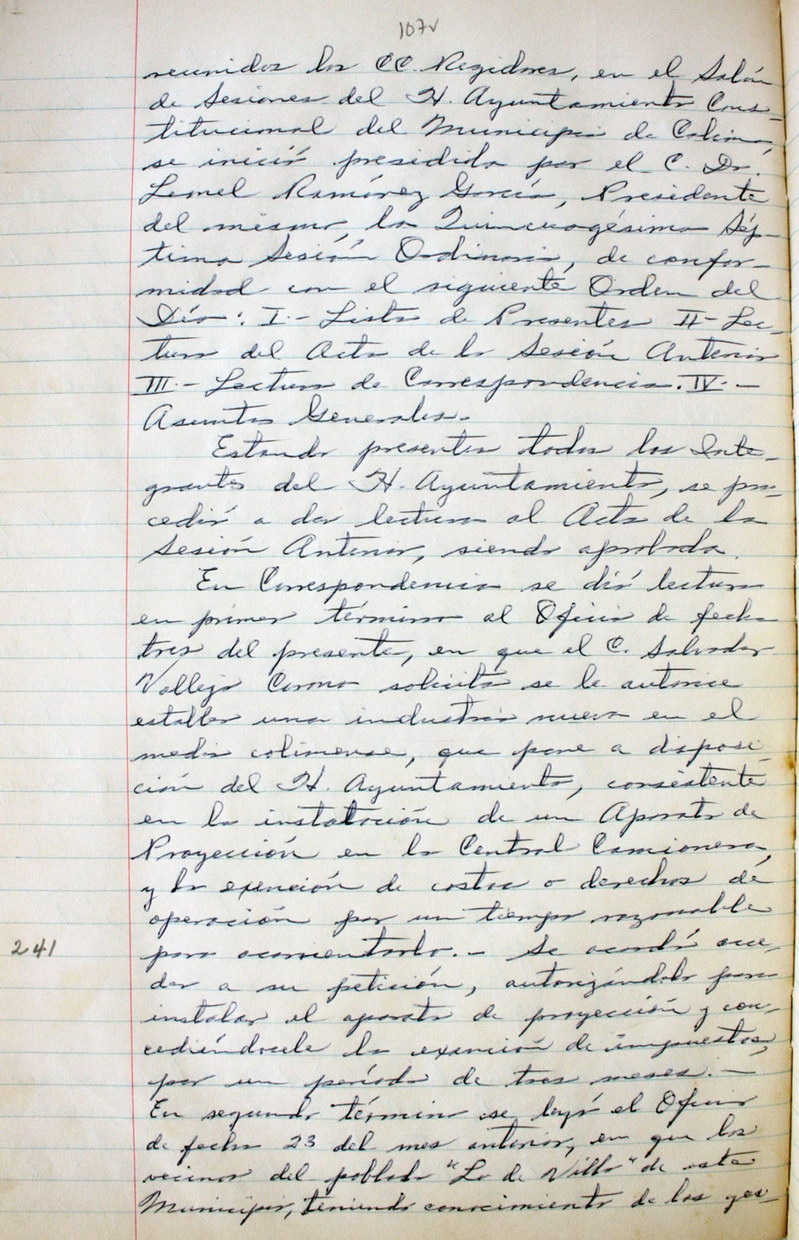 107v
reunidos los CC. Regidores, en el Salón
de Sesiones del H. Ayuntamiento Cons-
titucional del Municipio de Colima,
se inició presidida por el C. Dr.
Leonel Ramírez García, Presidente
del mismo, la Quincuagésima Sép-
tima Sesión Ordinaria, de confor-
midad con el siguiente Orden del
Día: I.- Lista de Presentes II- Lec-
tura del Acta de la Sesión Anterior
III.- Lectura de Correspondencia. IV.-
Asuntos Generales.-
Estando presentes todos los Inte-
grantes del H. Ayuntamiento, se pro-
cedió a dar lectura al Acta de la
Sesión Anterior, siendo aprobada.
En Correspondencia se dió lectura
en primer término al Oficio de fecha
tres del presente, en que el C. Salvador
Vallejo Corona solicita se le autorice
establler una industria nueva en el
medio colimense, que pone a disposi-
ción del H. Ayuntamiento, consistente
en la instalación de un Aparato de
Proyección en la Central Camionera,
y la exención de costos o derechos de
operación por un tiempo razonable
para acomentarlo.- Se acordó acce-
241
der a su petición, autorizándolo para
instalar el aparato de proyección y con-
cediéndosele la exención de impuestos,
por un período de tres meses.-
En segundo término se leyó el Oficio
de fecha 23 del mes anterior, en que los
vecinos del poblado "Lo de Villa" de este
Municipio, teniendo conocimiento de las ges-